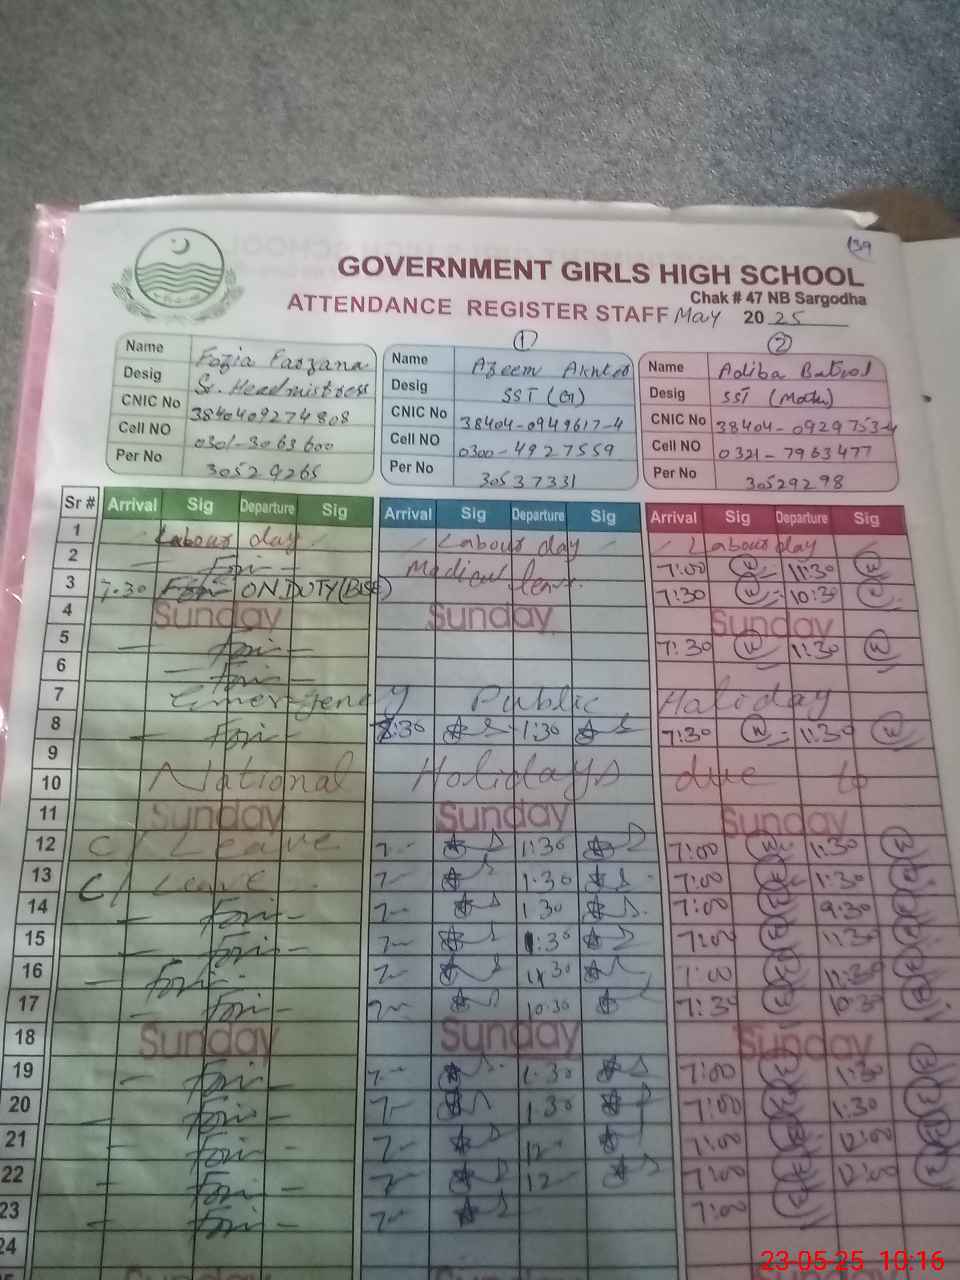 139
GOVERNMENT GIRLS HIGH SCHOOL
Chak # 47 NB Sargodha
ATTENDANCE REGISTER STAFF May 2025
1 2
Name Fozia Farzana Name Azeem Akhter Name Adiba Batool
Desig Sr. Headmistress Desig SST (G) Desig SST (Math)
CNIC No 3840409274808 CNIC No 38404-0949617-4 CNIC No 38404-0929753-4
Cell NO 0301-3063600 Cell NO 0300-4927559 Cell NO 0321-7963477
Per No 30529265 Per No 30537331 Per No 30529298
Sr # Arrival Sig Departure Sig Arrival Sig Departure Sig Arrival Sig Departure Sig
1 Labour day Labour day Labour day
2 Medical 7:00 11:30
3 7:30 ON DUTY (BISE) 7:30 10:30
4 Sunday Sunday Sunday
5 7:30 11:30
6
7 Emergency Public Holiday
8 1:30 7:30 11:30
9
10 National Holidays due to
11 Sunday Sunday Sunday
12 C/Leave 7 1:30 7:00 1:30
13 C/Leave 7 1:30 7:00 1:30
14 7 1:30 7:00 9:30
15 7 1:30 7:00 11:30
16 7 11:30 7:00 11:30
17 7 10:30 7:30 10:30
18 Sunday Sunday Sunday
19 7 1:30 7:00 1:30
20 7 1:30 7:00 1:30
21 7 12 7:00 12:00
22 7 12 7:00 12:00
23 7 7:00
24
23-05-25 10:16